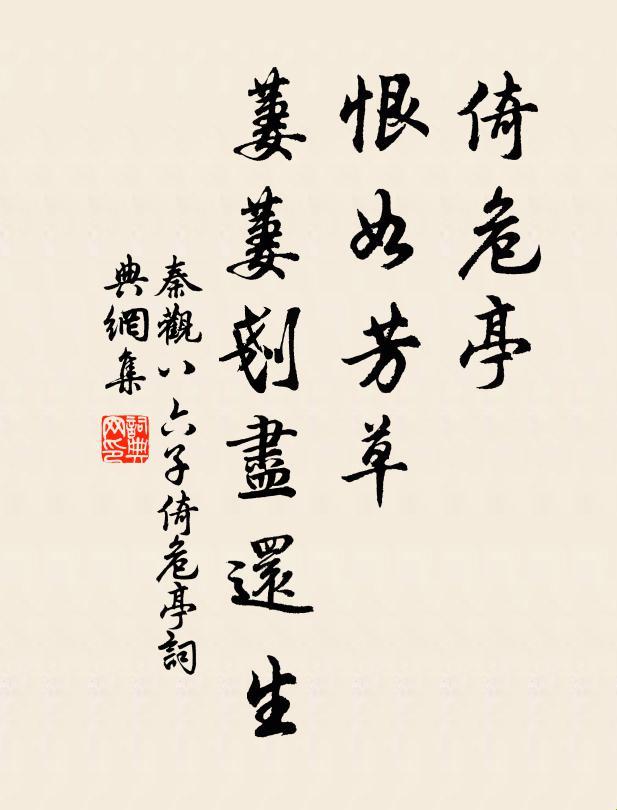 倚危亭
恨如芳草
萋萋剗盡還生
秦觀八六子倚危亭詞
典網集
詞典
网印